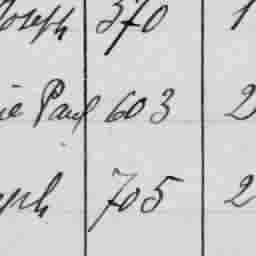 Joseph 370 1
ie Paul 603 2
eph 705 2